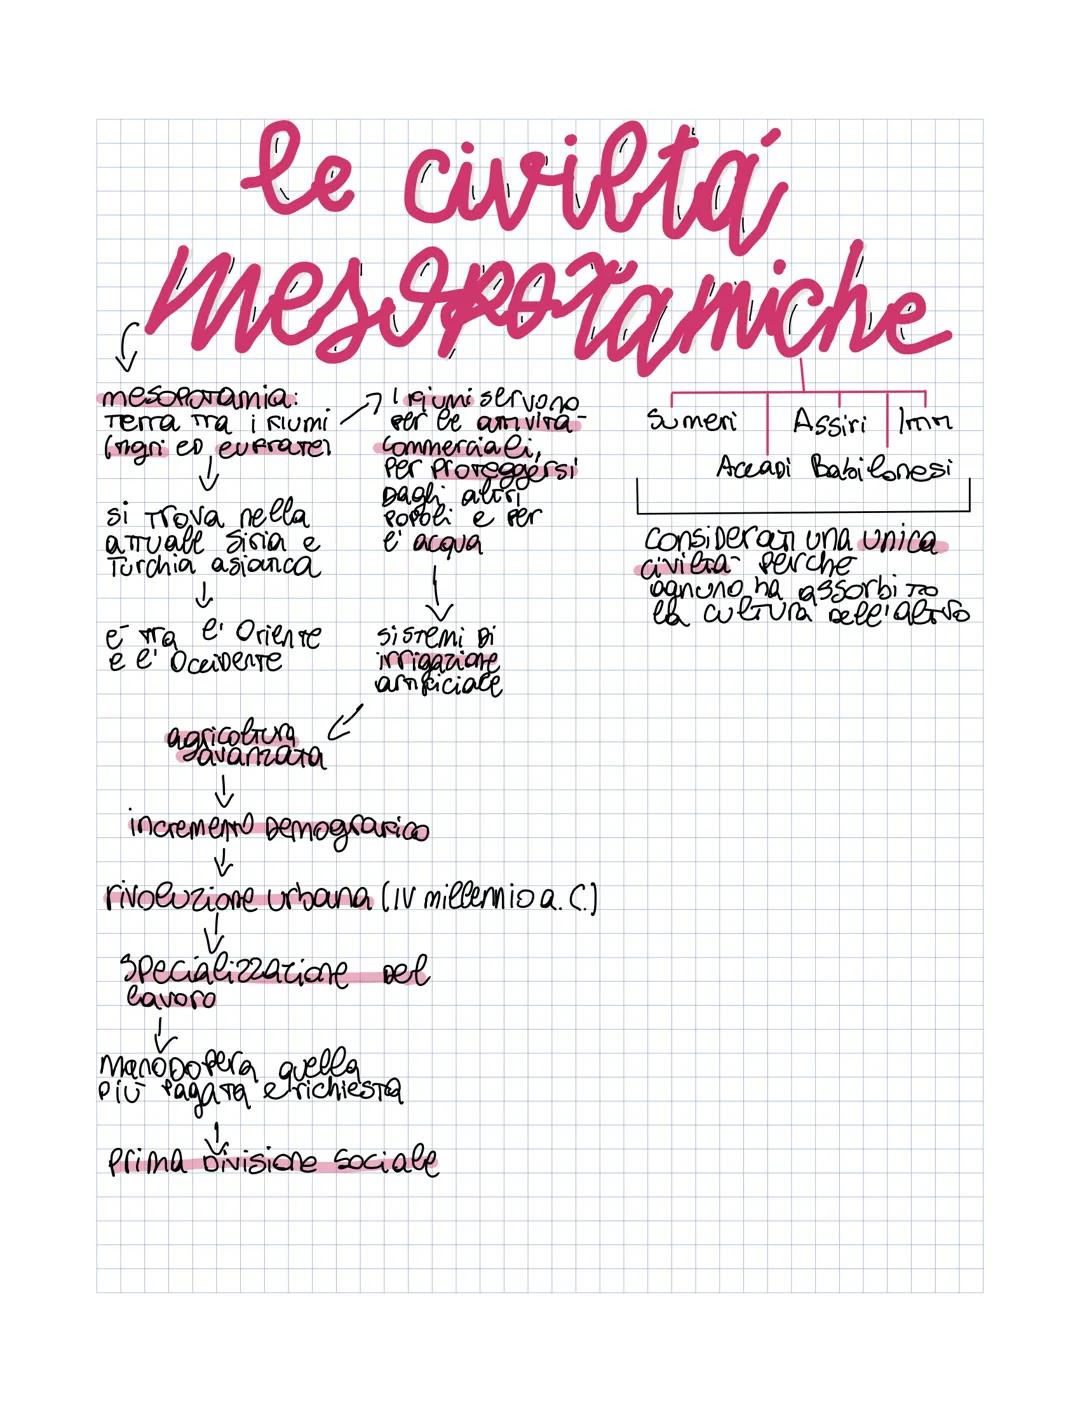 le civiltá
mesopotamiche
mesopotamia:
terra tra i fiumi
(tigri ed eufrate)
si trova nella
attuale Siria e
Turchia asiatica
é tra l'Oriente
e l'Occidente
I fiumi servono
per le attivitá
commerciali,
per proteggersi
dagli altri
popoli e per
l'acqua
sistemi di
irrigazione
artificiale
agricoltura
avanzata
incremento demografico
rivoluzione urbana (IV millennio a.C.)
specializzazione del
lavoro
manodopera quella
piú pagata e richiesta
prima divisione sociale
Sumeri Assiri Ittiti
Accadi Babilonesi
considerati una unica
civiltá perché
ognuno ha assorbito
la cultura dell'altro